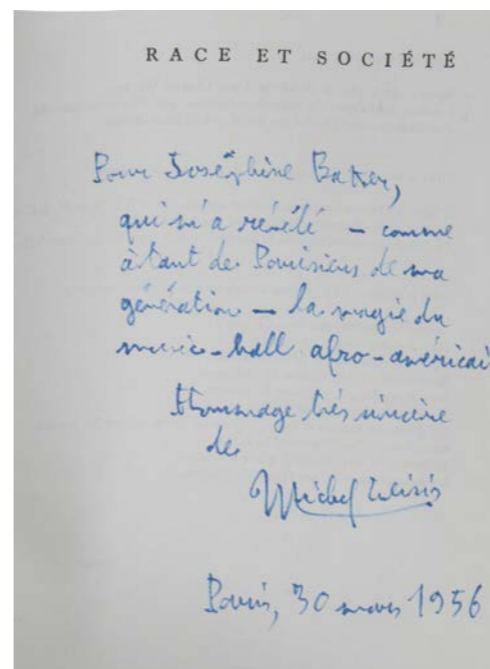 RACE ET SOCIÉTÉ
Pour Joséphine Baker,
qui m'a révélé – comme
à tant de Parisiens de ma
génération – la magie du
music-hall afro-américai
Hommage très sincère
de
Michel Leiris
Paris, 30 mars 1956